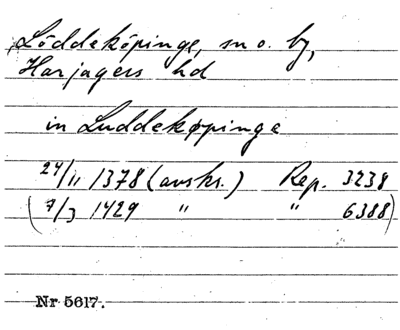 Löddeköpinge, sn o. by,
Harjagers hd
in Luddekøpinge
24/11 1378 (avskr.) Rep. 3238
(7/3 1429 " " 6388)
Nr 5617.